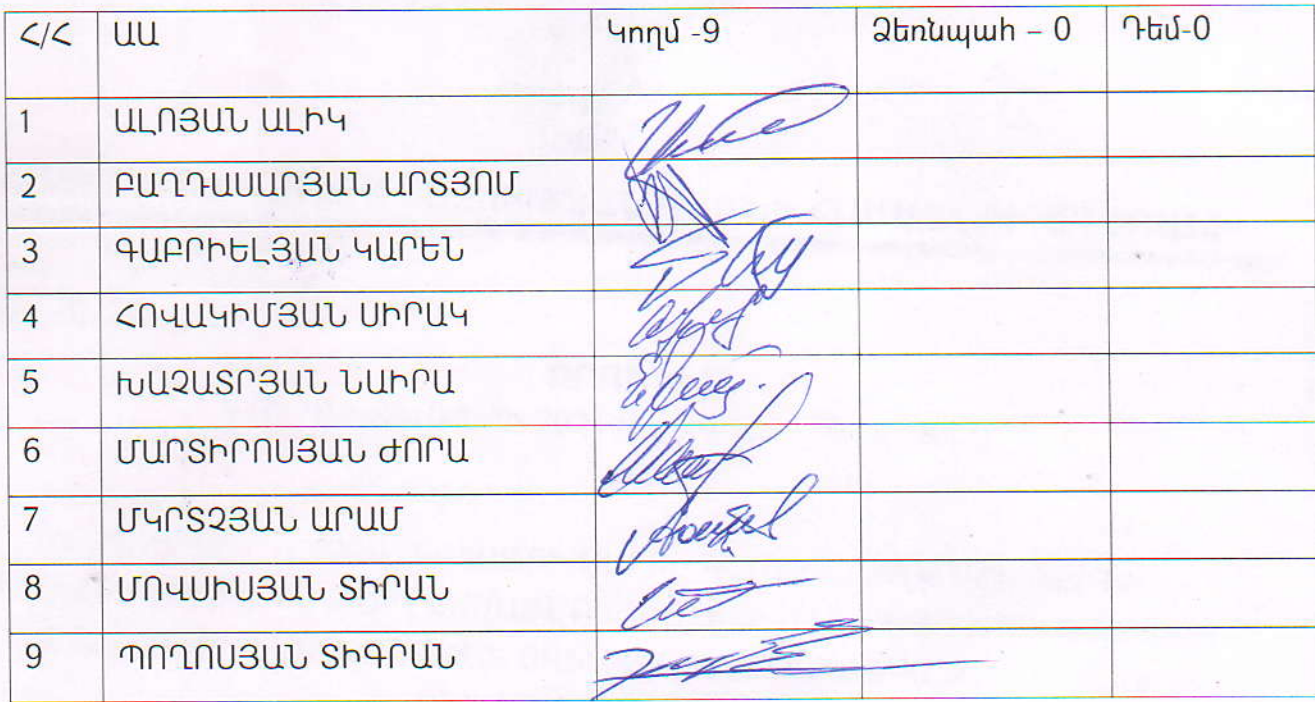 Հ/Հ ԱԱ Կողմ -9 Ձեռնպահ – 0 Դեմ-0
1 ԱԼՈՅԱՆ ԱԼԻԿ
2 ԲԱՂԴԱՍԱՐՅԱՆ ԱՐՏՅՈՄ
3 ԳԱԲՐԻԵԼՅԱՆ ԿԱՐԵՆ
4 ՀՈՎԱԿԻՄՅԱՆ ՍԻՐԱԿ
5 ԽԱՉԱՏՐՅԱՆ ՆԱԻՐԱ
6 ՄԱՐՏԻՐՈՍՅԱՆ ԺՈՐԱ
7 ՄԿՐՏՉՅԱՆ ԱՐԱՄ
8 ՄՈՎՍԻՍՅԱՆ ՏԻՐԱՆ
9 ՊՈՂՈՍՅԱՆ ՏԻԳՐԱՆ